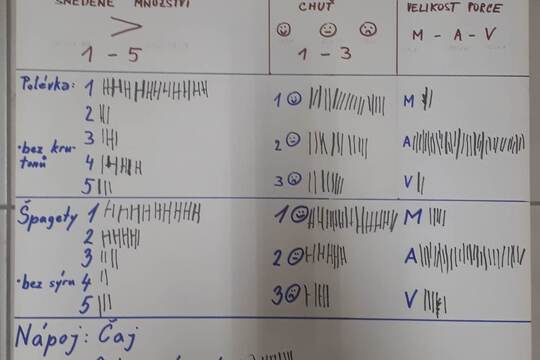 SNĚDENÉ MNOŽSTVÍ CHUŤ VELIKOST PORCE
>
1 - 5 1 - 3 M - A - V
Polévka: 1 1 M
2
3 2 A
• bez kru-
tonů 4
5 3 V
Špagety 1 1 M
2
3 2 A
• bez sýru 4
5 3 V
Nápoj: Čaj